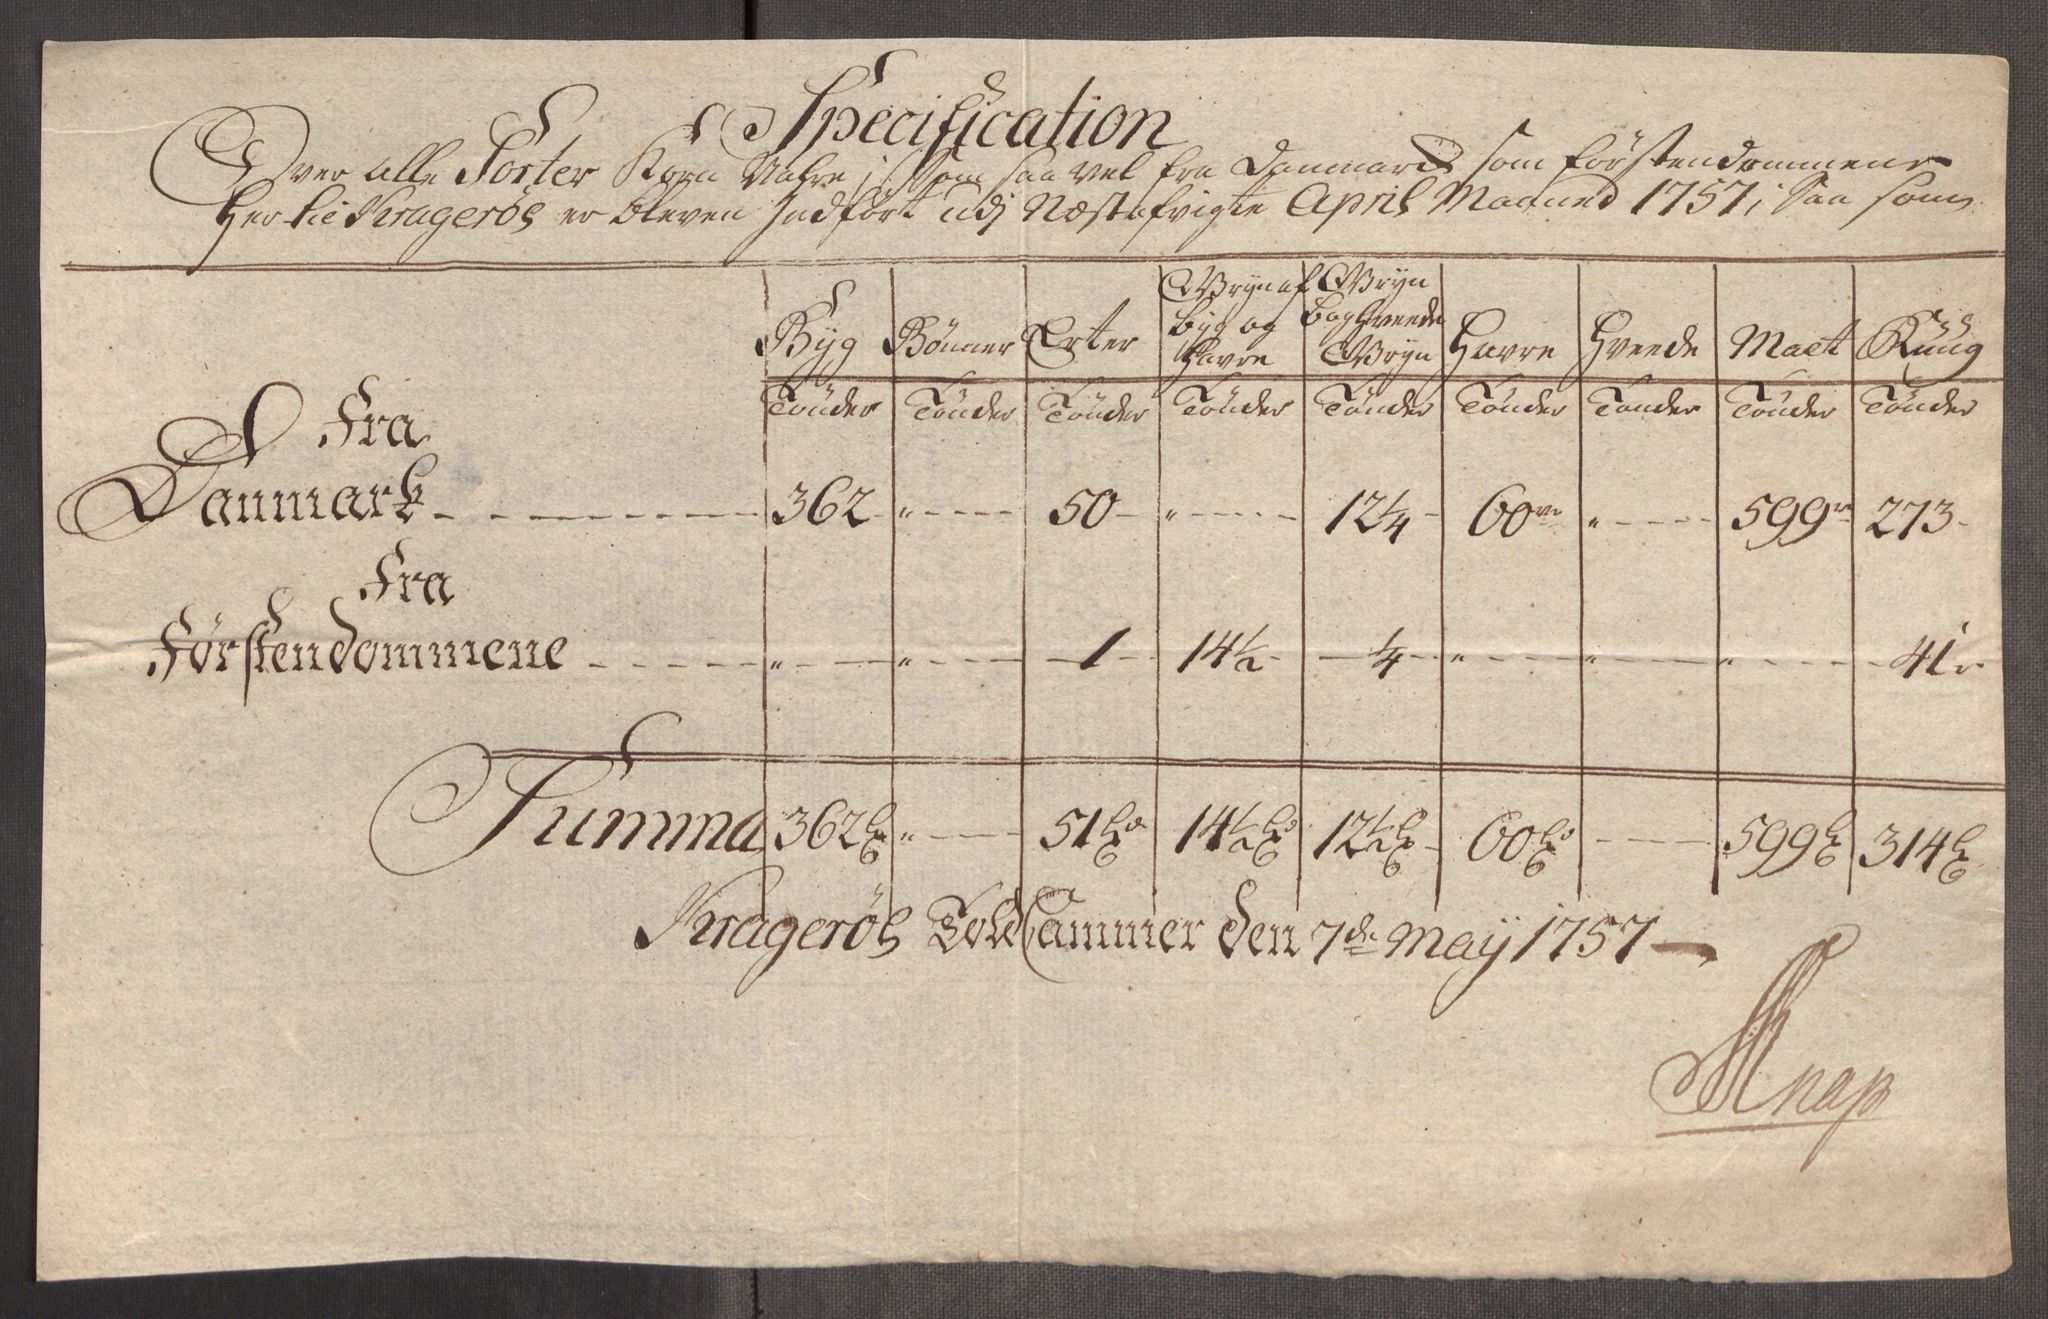 Specification
Over alle Sorter Korn Vahre, som saa vel fra Danmarck som förstendommene
Her til Krageröe er bleven Indfört udj Næstafvigte April Maaned 1757; Saa som
Byg Bönner Erter Gryn af byg og Havre Gryn Boghveede Gryn Havre Hveede Maet Rüüg
Tönder Tönder Tönder Tönder Tönder Tönder Tönder Tönder Tönder
Fra
Danmark 362 " 50 " 12 1/4 60 " 599 273
Fra
Förstendommene " " 1 14 1/2 1/4 " " " 41
Summa 362 " 51 14 1/2 12 1/2 60 599 314
Krageröe Told Cammer den 7de Maij 1757
Knap